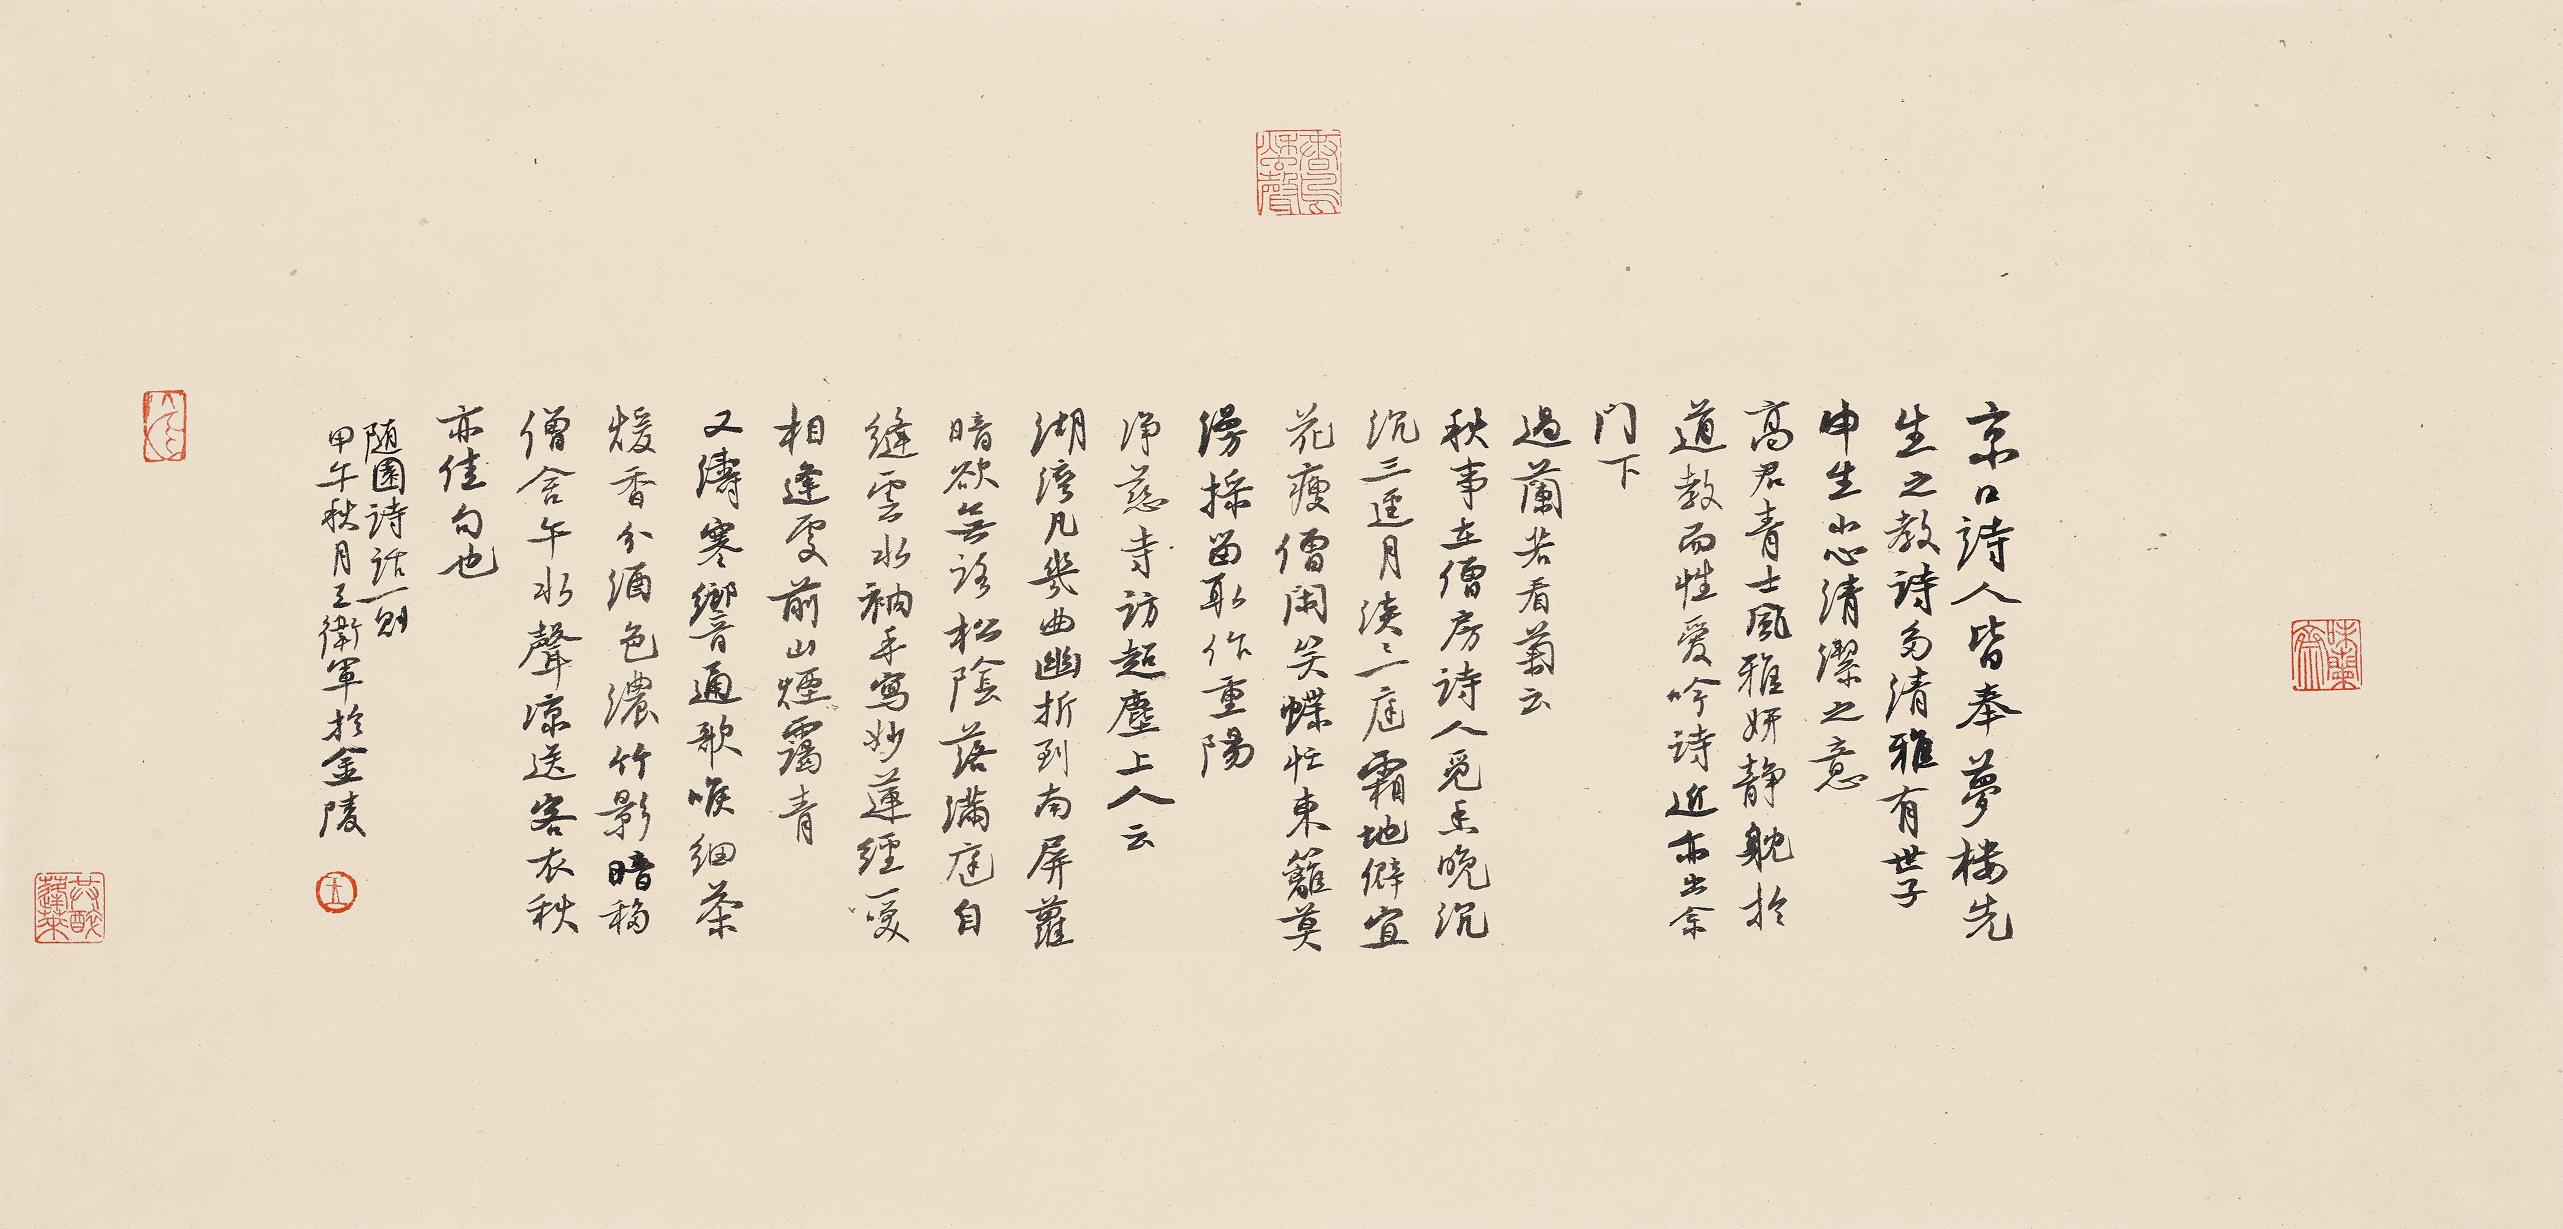 京口詩人皆奉夢樓先
生之教詩多清雅有世子
申生小心清潔之意
高君青士風雅妍静躭於
道教而性愛吟詩近亦出余
门下
過蘭若看菊云
秋事在僧房詩人覓末晚沉
沉三逕月淡二庭霜地僻宜
花瘦僧閑笑蝶忙東籬莫
漫採留取作重陽
净慈寺訪超塵上人云
湖湾凡幾曲幽折到南屏蘿
暗欲無路松陰落滿庭自
縫雲水衲手寫妙蓮經一笑
相逢處前山煙靄青
又濤寒響音通歌喉細茶
煖香分酒色濃竹影暗移
僧舍午水聲凉送客衣秋
亦佳句也
随園詩話一则
甲午秋月王衛軍於金陵
味蘭齋
共醉蓬萊